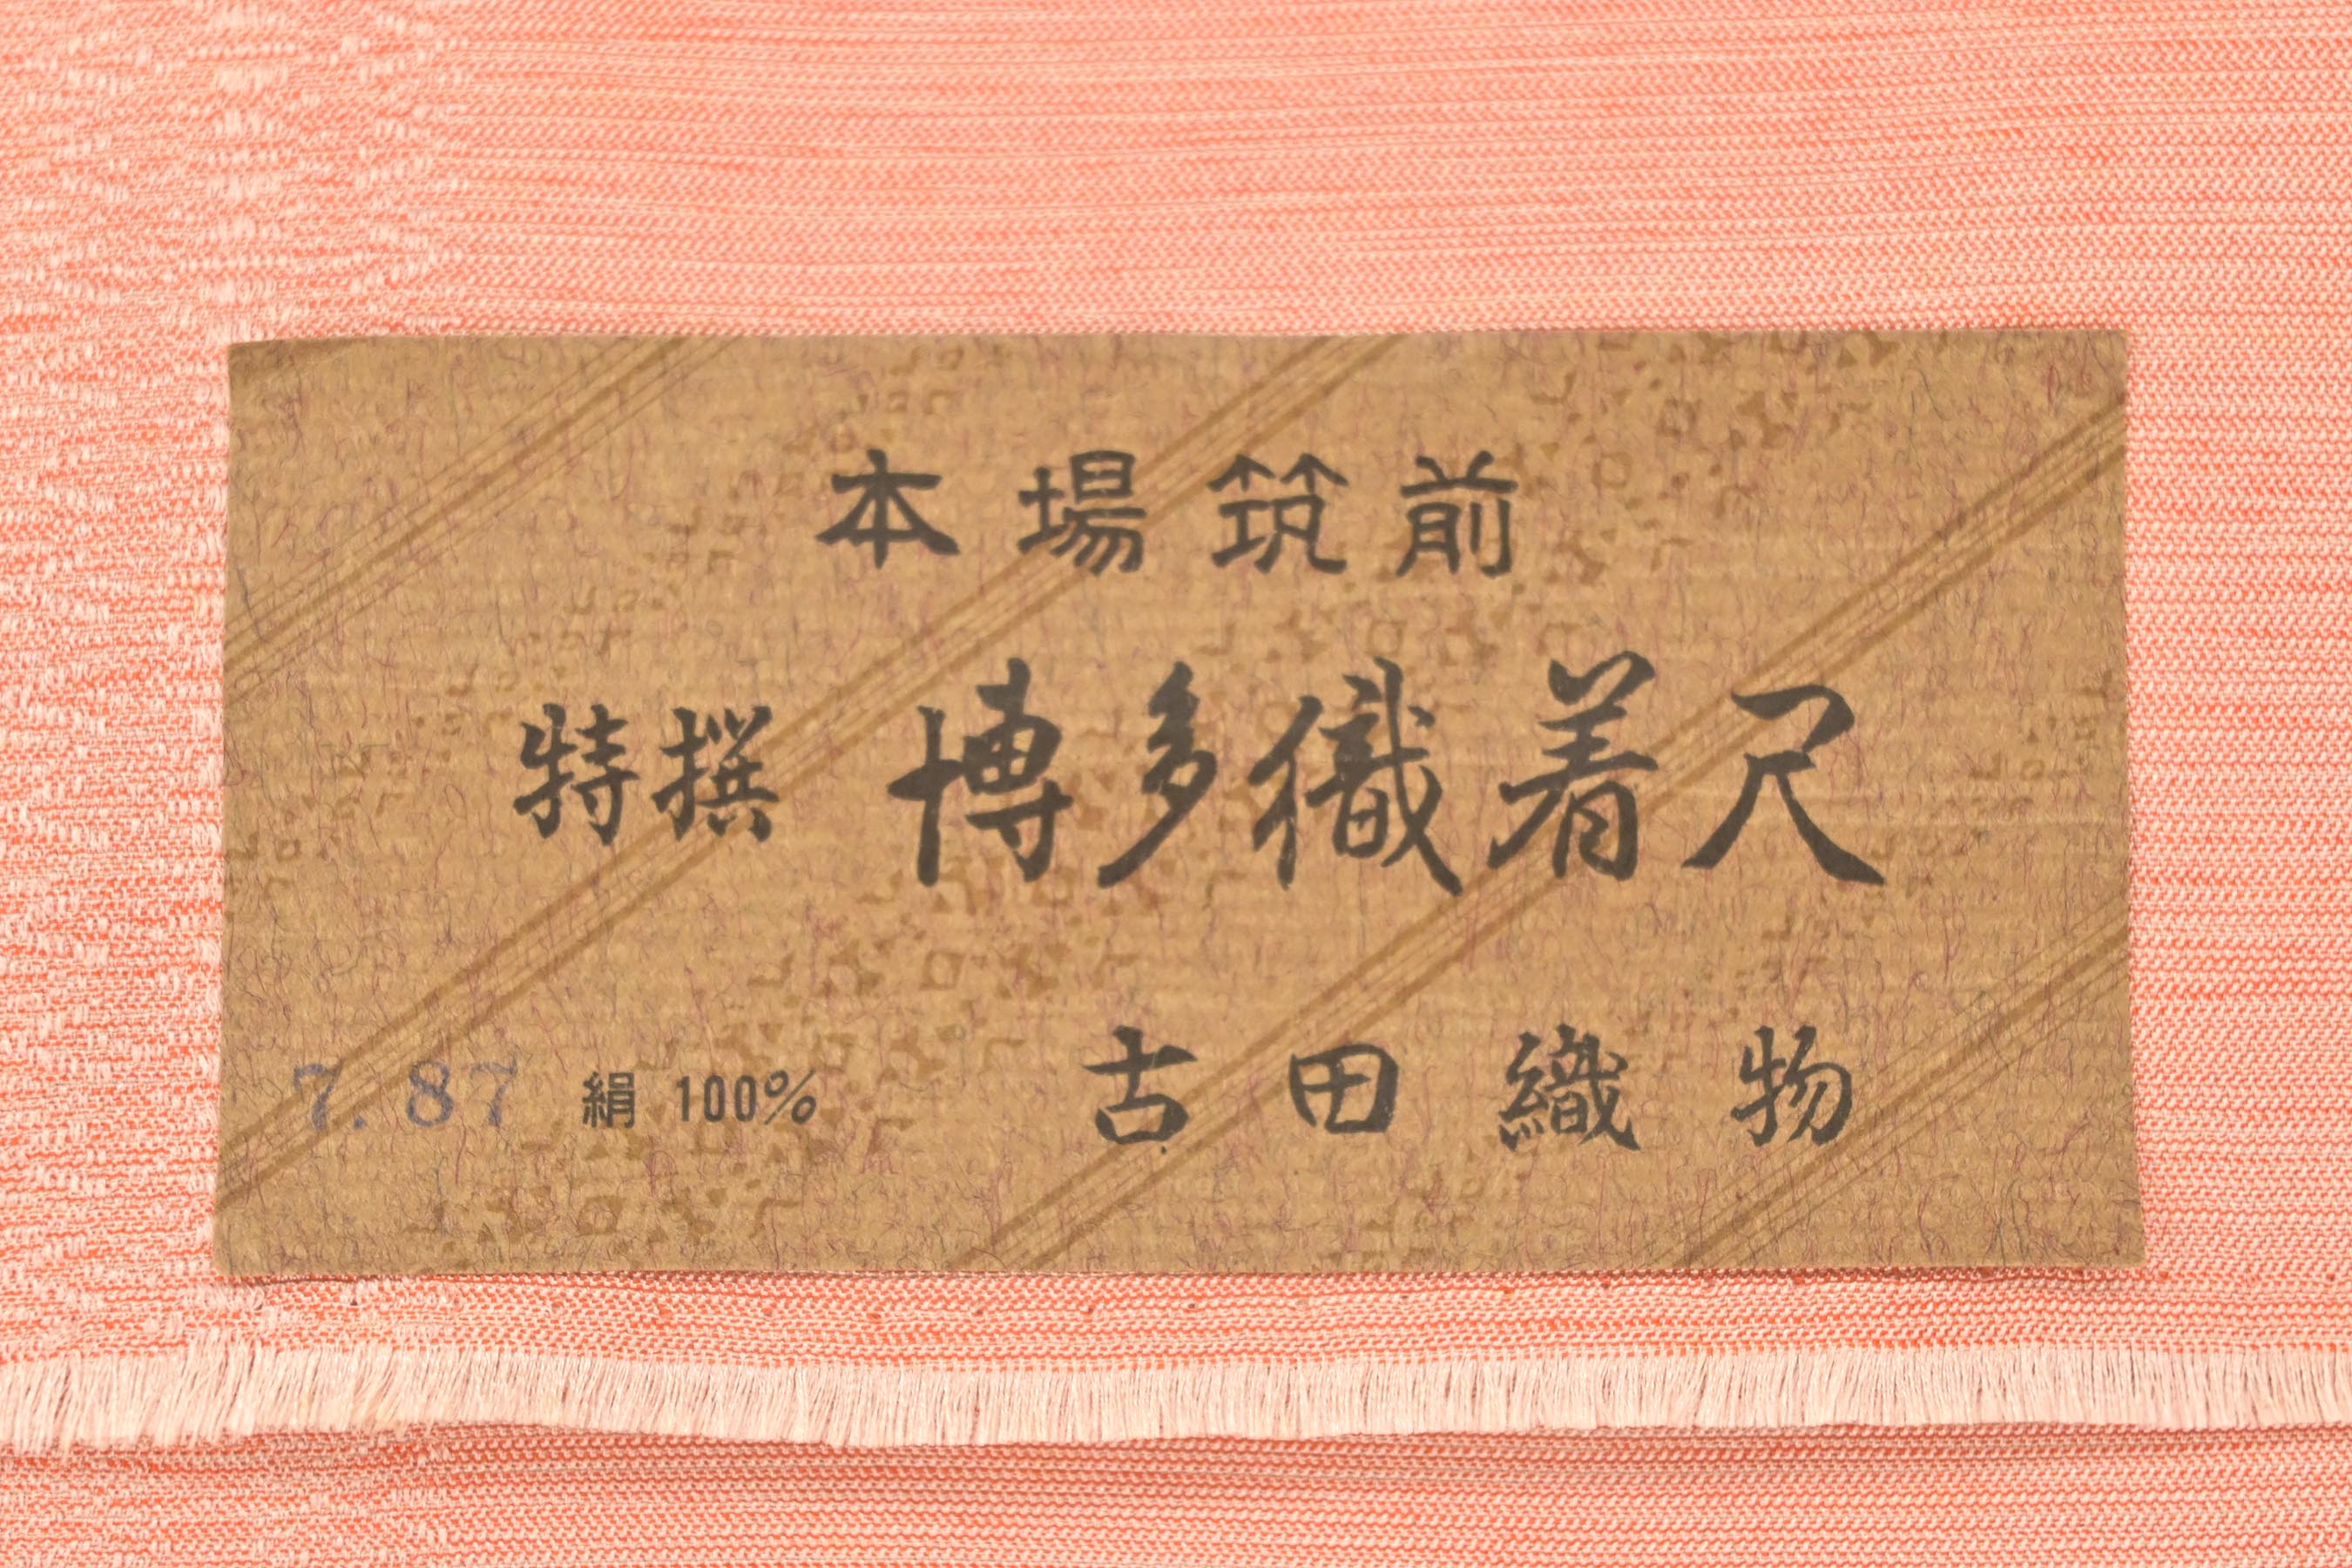 本場筑前
特撰 博多織着尺
7.87 絹 100% 古田織物